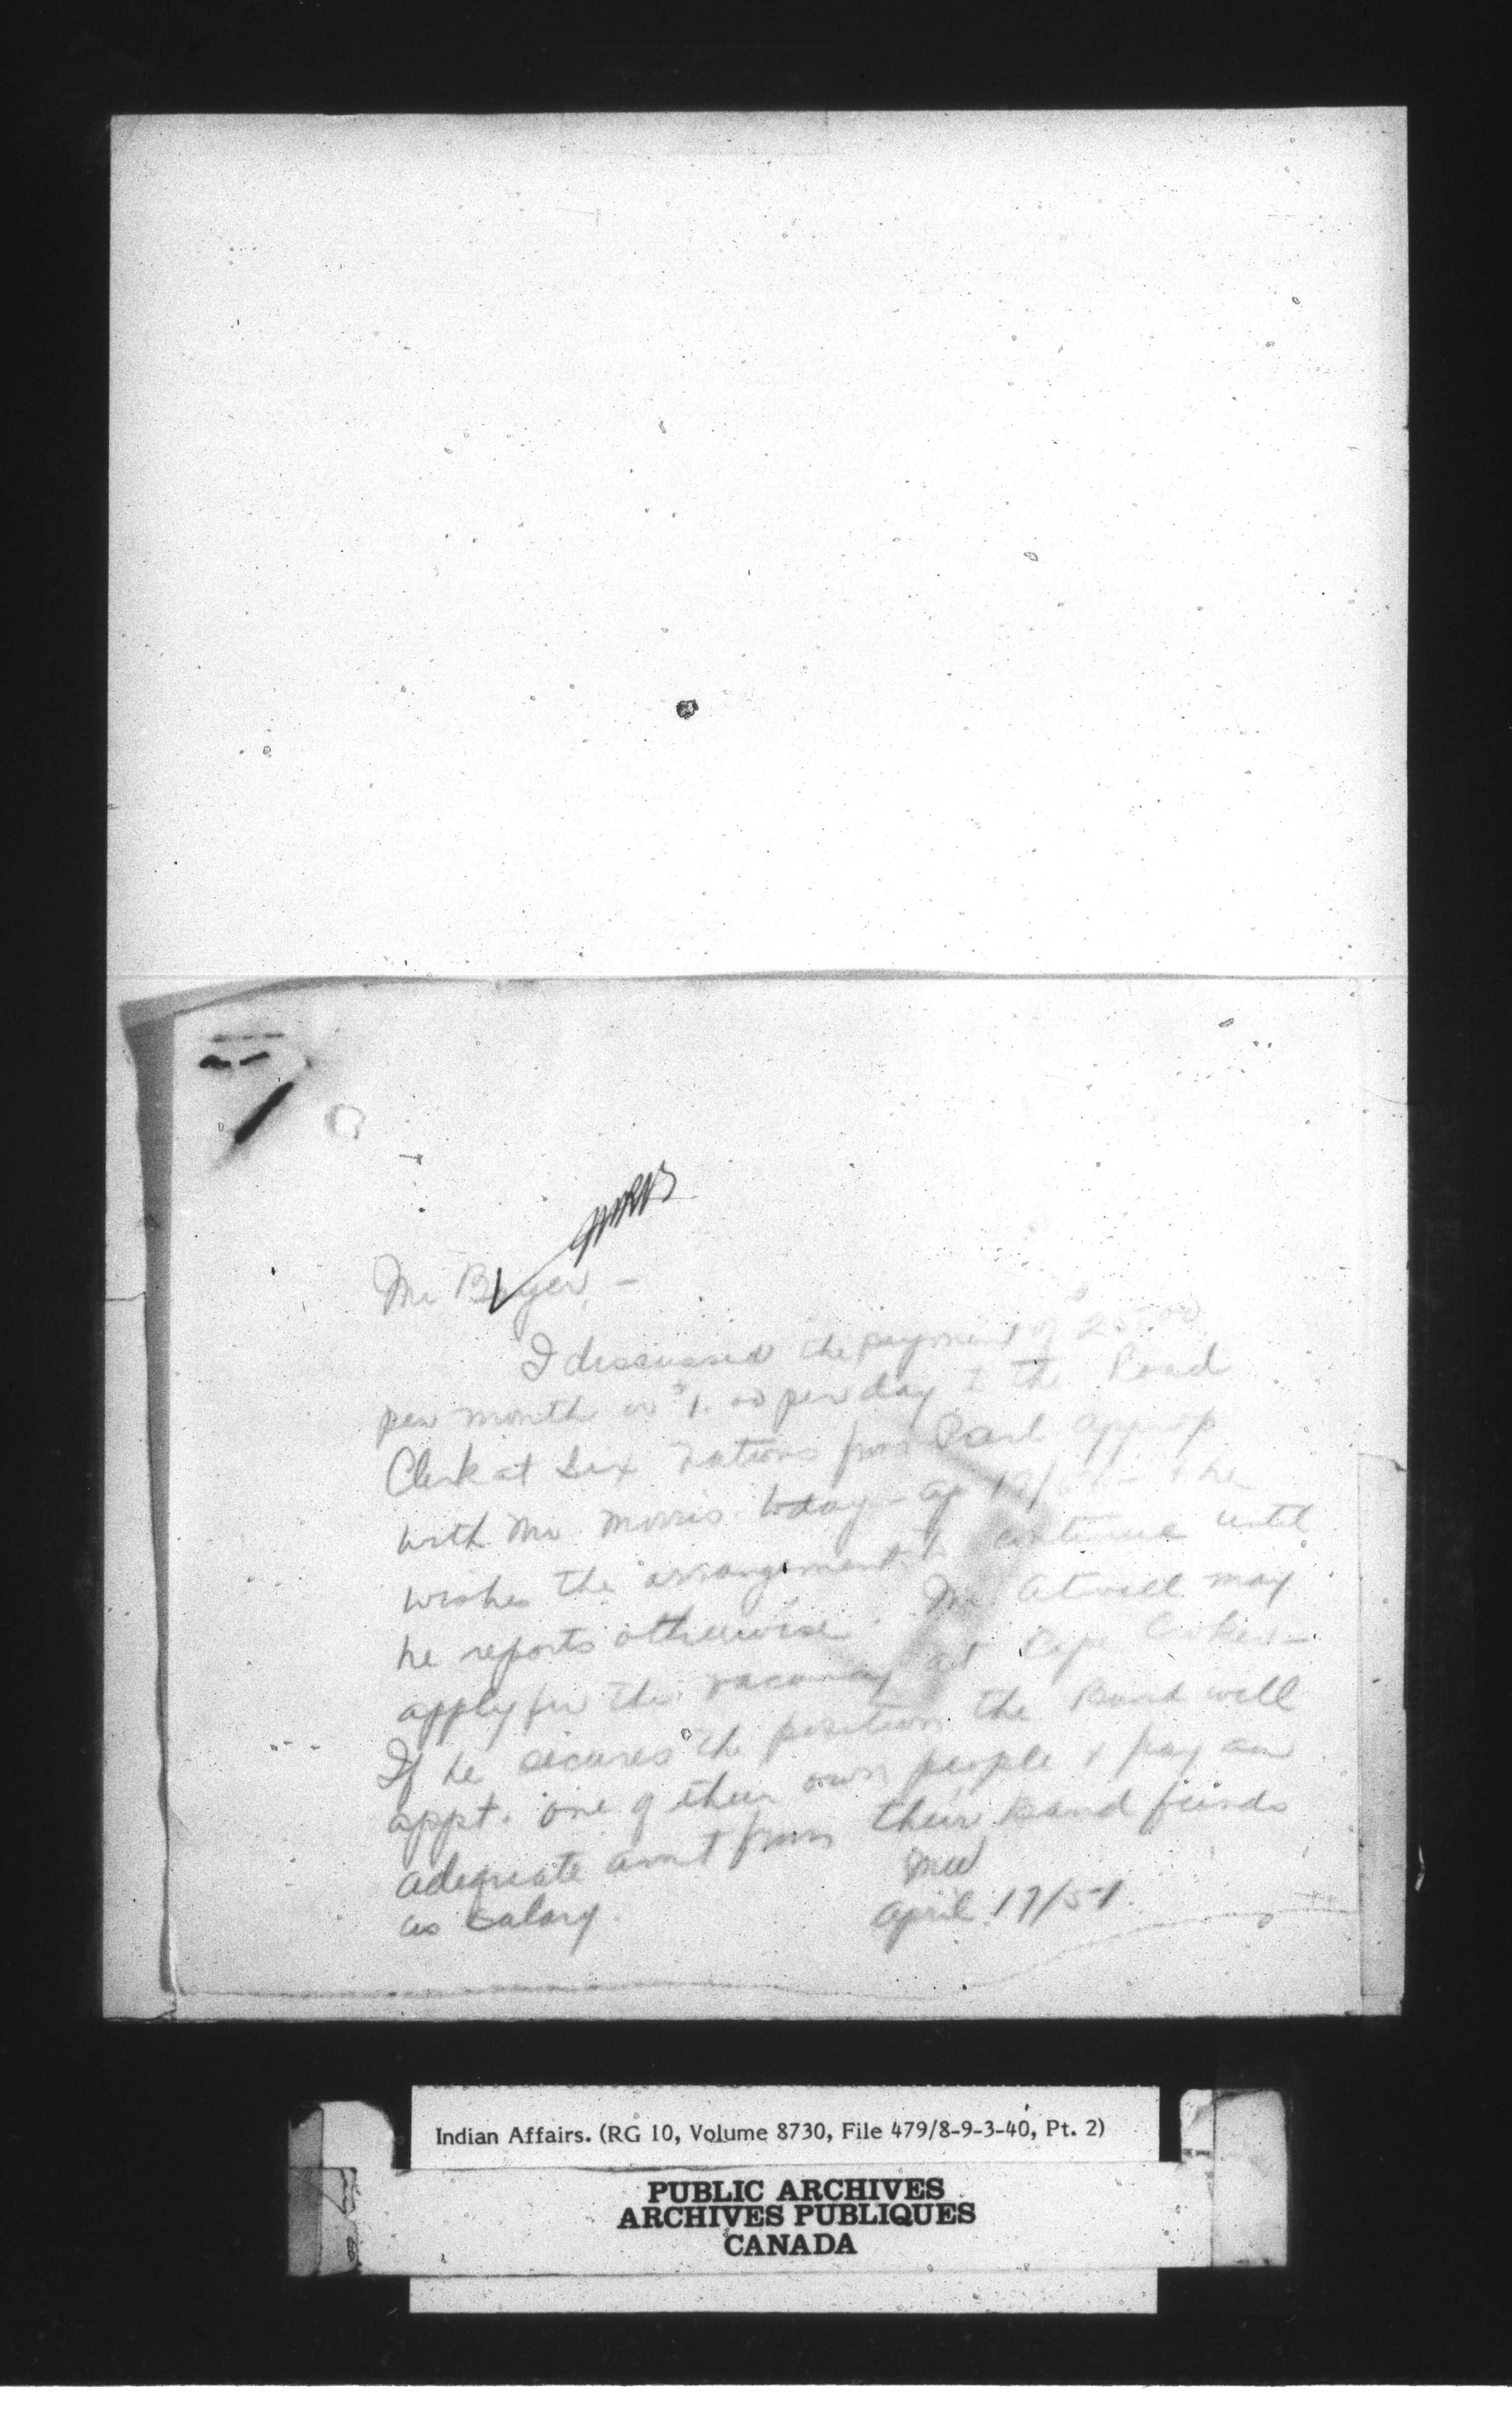 Mr Boyer, -
I discussed the payment of $25.00
per month or $1.00 per day to the Road
Clerk at Six Nations from Parl. Approp
with Mr Morris today - Ap 17/51 - & he
wishes the arrangement to continue until
he reports otherwise. Mr Atwell may
apply for the vacancy at Cape Croker -
If he secures the position the Band will
appt. one of their own people & pay an
adequate amt from their Band funds
as salary.
April 17/51
Indian Affairs. (RG 10, Volume 8730, File 479/8-9-3-40, Pt. 2)
PUBLIC ARCHIVES
ARCHIVES PUBLIQUES
CANADA